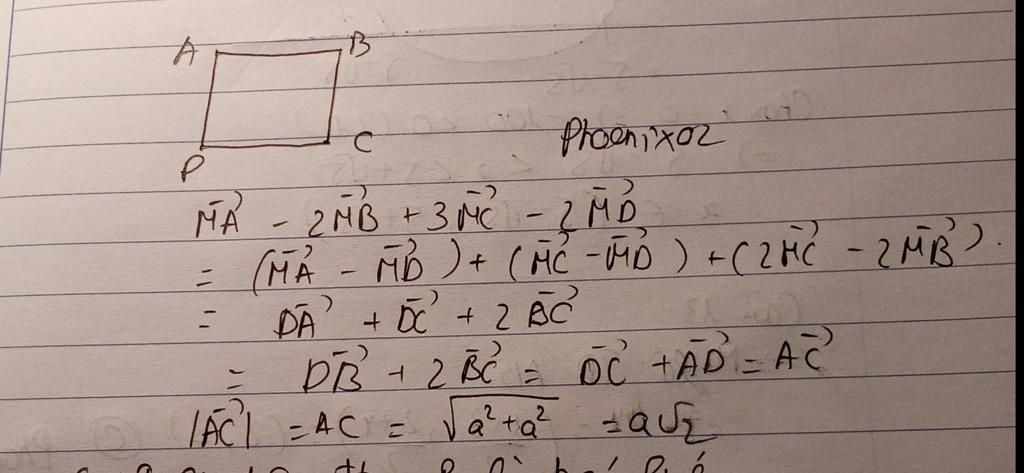 A B
D C
Phoenix02
\vec{MA} - 2\vec{MB} + 3\vec{MC} - 2\vec{MD}
= (\vec{MA} - \vec{MD}) + (\vec{MC} - \vec{MD}) + (2\vec{MC} - 2\vec{MB}).
= \vec{DA} + \vec{DC} + 2\vec{BC}
= \vec{DB} + 2\vec{BC} = \vec{DC} + \vec{AD} = \vec{AC}
|\vec{AC}| = AC = \sqrt{a^2+a^2} = a\sqrt{2}